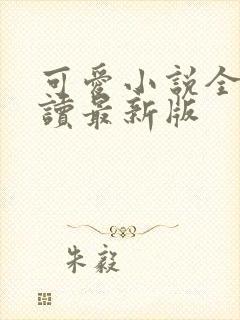 可愛小說全
讀最新版
朱毅